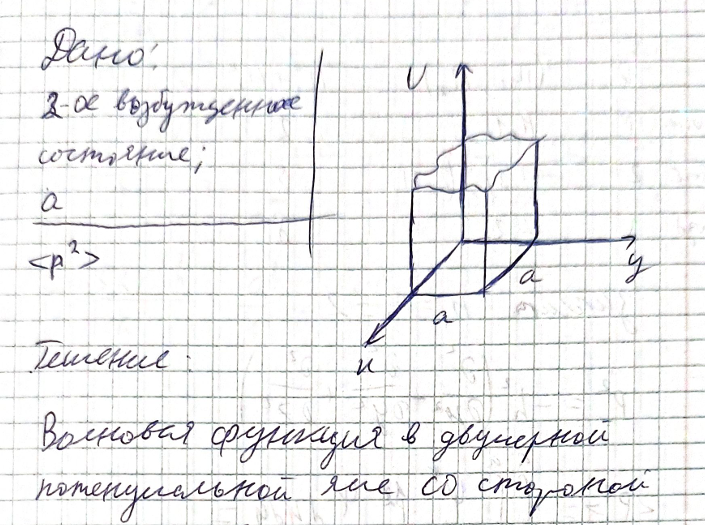 Дано:
2-ое возбужденное
состояние;
a
<p²>
U
y
a
a
x
Решение:
Волновая функция в двумерной
потенциальной яме со стороной